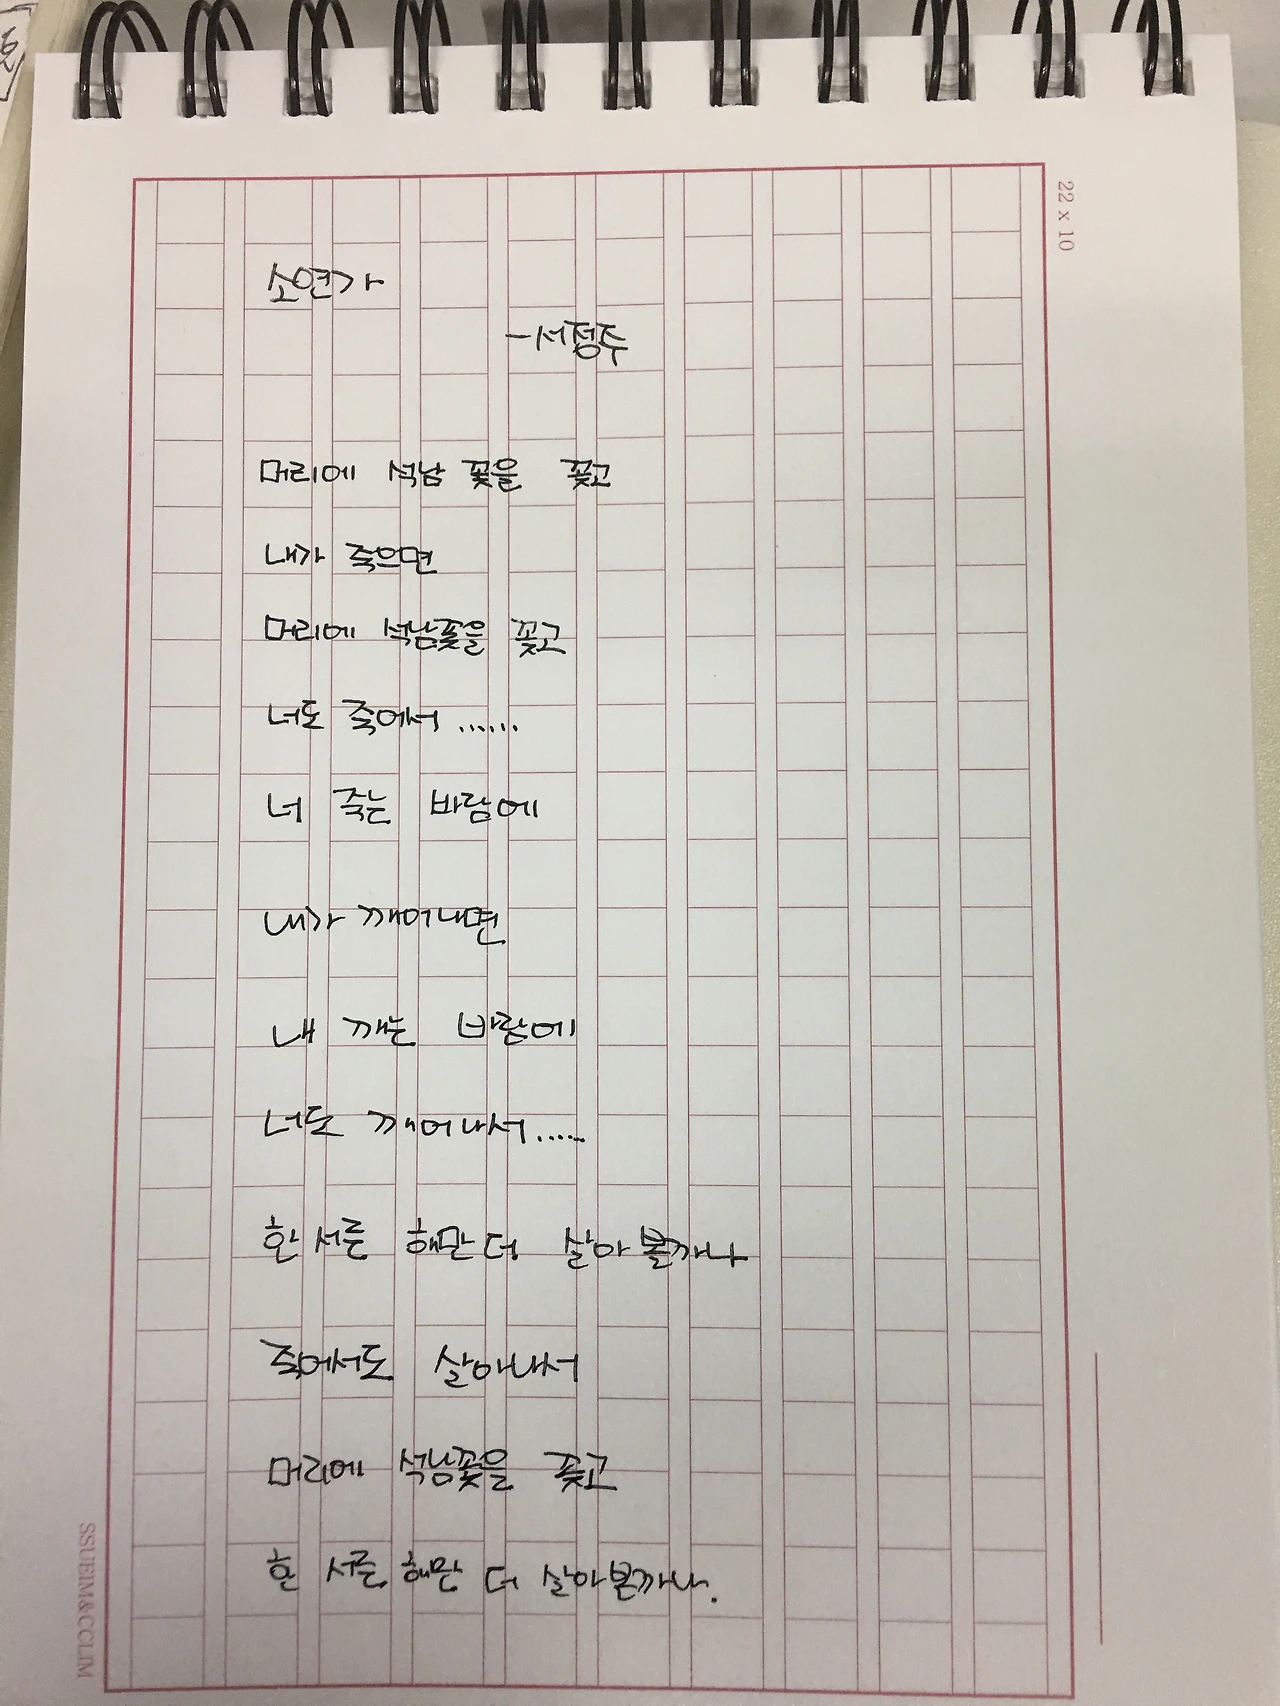 22 x 10
소연가
-서정주
머리에 석남 꽃을 꽂고
내가 죽으면
머리에 석남꽃을 꽂고
너도 죽어서 ......
너 죽는 바람에
내가 깨어나면
내 깨는 바람에
너도 깨어나서 ......
한 서른 해만 더 살아 볼까나
죽어서도 살아나서
머리에 석남꽃을 꽂고
한 서른 해만 더 살아볼까나.
SSUEIM&CCLIM